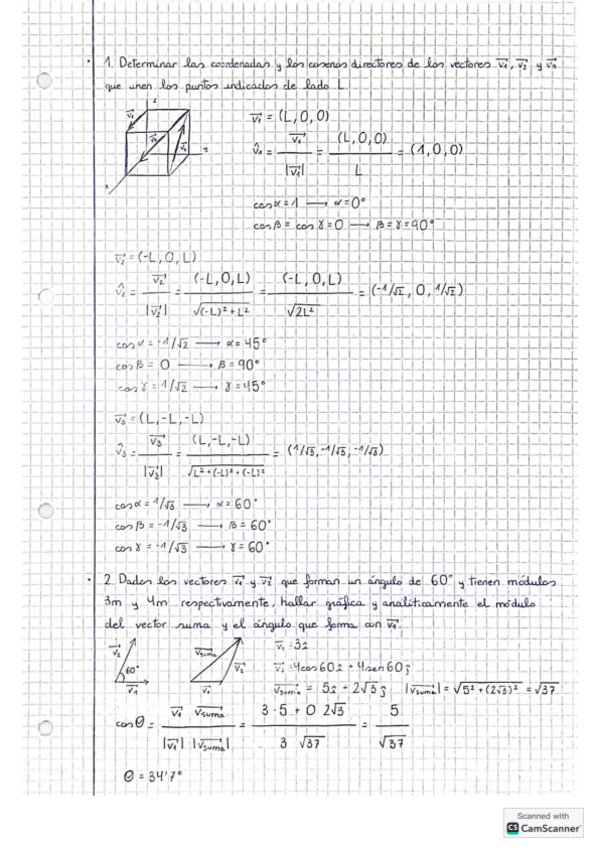 1. Determinar las coordenadas y los cosenos directores de los vectores v₁, v₂ y v₃
que unen los puntos indicados de lado L
z
v₁
v₃
v₂
y
x
v₁ = (L,0,0)
v̂₁ = v₁ / |v₁| = (L,0,0) / L = (1,0,0)
cosα = 1 → α = 0°
cosβ = cosγ = 0 → β = γ = 90°
v₂ = (-L,0,L)
v̂₂ = v₂ / |v₂| = (-L,0,L) / √(-L)²+L² = (-L,0,L) / √2L² = (-1/√2, 0, 1/√2)
cosα = -1/√2 → α = 45°
cosβ = 0 → β = 90°
cosγ = 1/√2 → γ = 45°
v₃ = (L,-L,-L)
v̂₃ = v₃ / |v₃| = (L,-L,-L) / √L²+(-L)²+(-L)² = (1/√3, -1/√3, -1/√3)
cosα = 1/√3 → α = 60°
cosβ = -1/√3 → β = 60°
cosγ = -1/√3 → γ = 60°
2. Dados los vectores v₁ y v₂ que forman un ángulo de 60° y tienen módulos
3m y 4m respectivamente, hallar gráfica y analíticamente el módulo
del vector suma y el ángulo que forma con v₁.
v₂
60°
v₁
vsuma
v₂
v₁
v₁ = 3i
v₂ = 4cos60i + 4sen60j
vsuma = 5i + 2√3j |vsuma| = √5²+(2√3)² = √37
cosθ = v₁ vsuma / |v₁| |vsuma| = 3·5 + 0 2√3 / 3 √37 = 5 / √37
θ = 34'7°
Scanned with
CS CamScanner